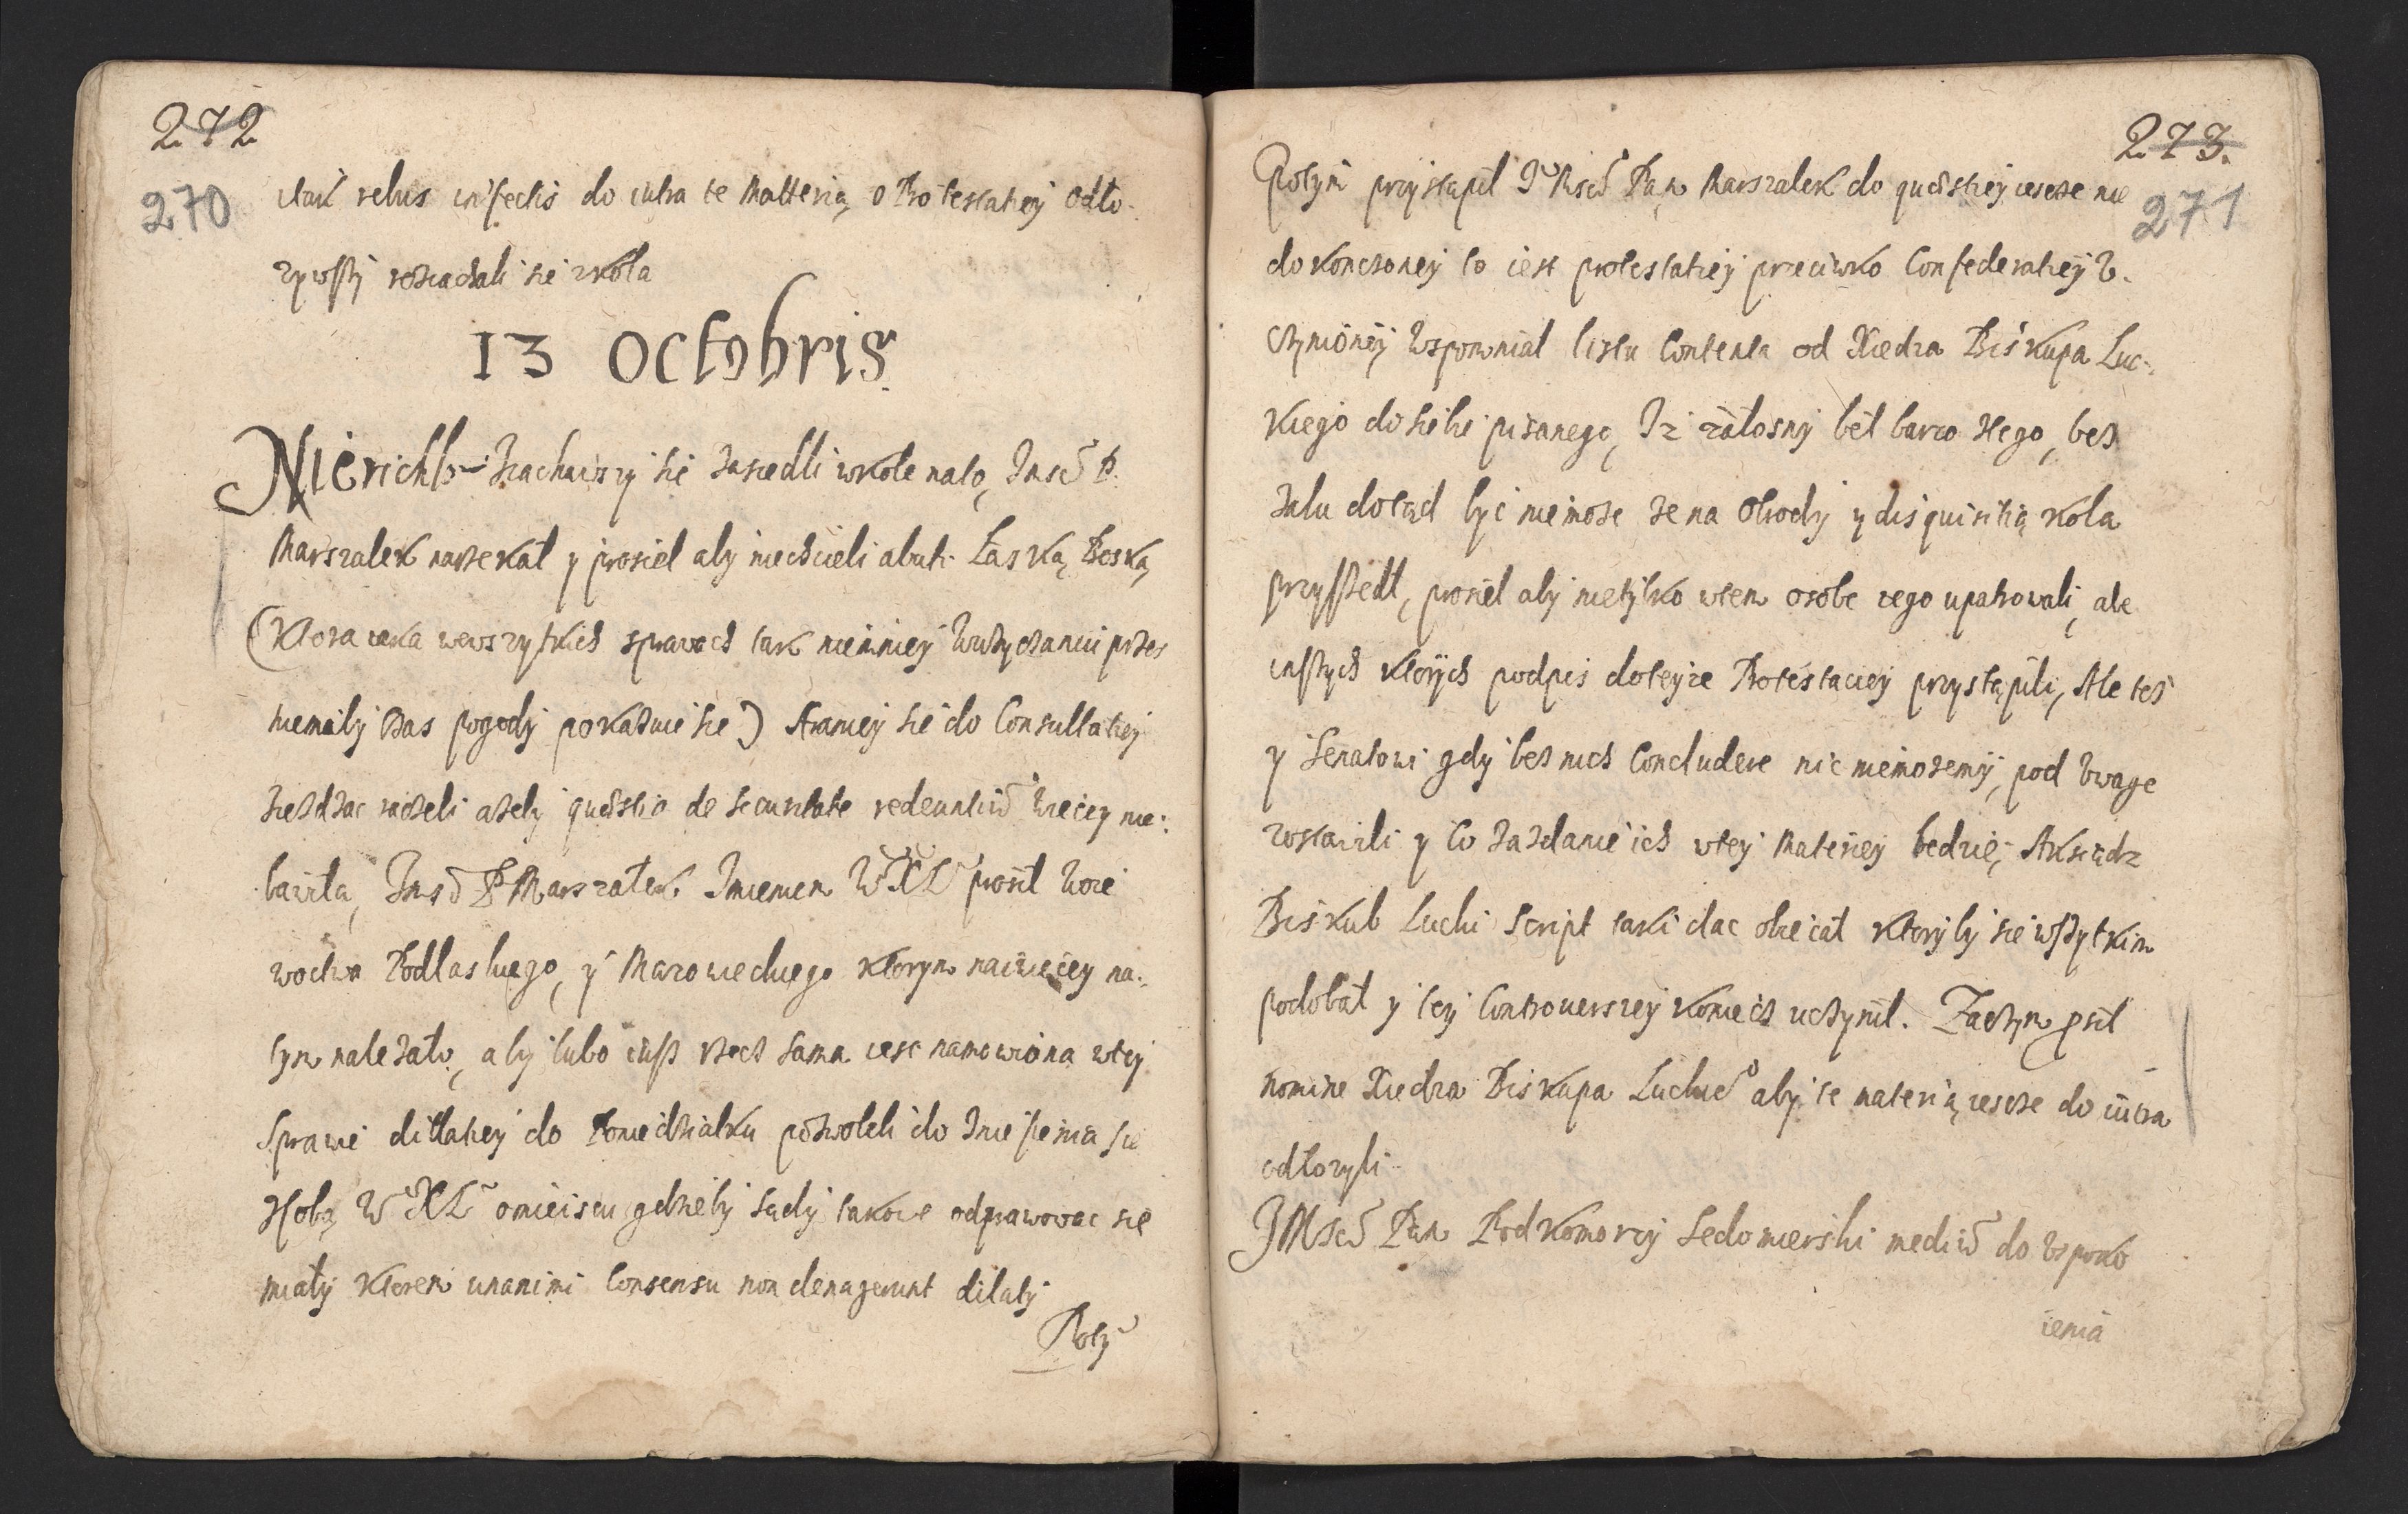 272
270
itak rebus infectis do iutra te Matterią o Protestatiey odło-
zywszy roziachali sie zkoła
13 Octobris
Nierichło ziachawszy sie zasiedli wkole nato, Jmsc P.
Marszalek narzekał y prosieł aby niechcieli abuti Łaską Boską,
(Ktora iaka wewszytkich sprawach tak niemniey wuzyczaniu przes
niemały czas pogody pokazuie sie) Araniey sie do Consultatiey
ziezdzac raczeli azeby quæstio de securitate redeuntiū wiecey nie:
bawiła, Jmsc P Marszałek Imieniem WXL prosił Woie
wodztwa Podlaskiego, y Mazowieckiego ktorym nawiecey na:
tym nalezało, aby lubo iusz rzecz sama iest namowiona wtey
Sprawie dillatiey do Poniedziałku pozwoleli do zniesienia sie
zsobą W XL omieiscu gdzieby sądy takowe odprawowac się
miały ktorem unanimi Consensu non denagerunt dilaty
Poty
273.
271
Potym przystąpił Jmsc Pan Marszalek do quæstiey iescze nie
dokonczoney to iest protestatiey przeciwko Confederatiey V-
czynioney Wspomniał listu Contenta od Xiedza Biskupa Luc-
kiego do siebie pisanego, Iz załosny beł barzo stego, bez
zalu dotąd byc niemoze ze na Obrody y disquisitią koła
przyszedł, prosieł aby nietylko wtem osobe iego upatrowali, ale
inszych ktorych podpis doteyze Protestaciey przystąpili, Ale tesz
y Senatowi gdy bez nich Concludere nic niemozemy, pod Vwage
zostawili y Co zazdanie ich wtey Materiey bedzie, Aksiądz
Biskub Lucki Script taki dac obiecał ktoryby sie wszytkim
podobał y tey Controuersiey koniecz uczynił. Zaczym psił
nomine Xiedza Biskupa Luckieo aby te materią iescze do iutra
odłozyli
JMsc Pan Podkomorzy Sedomierski mediū do Vspoko
ienia